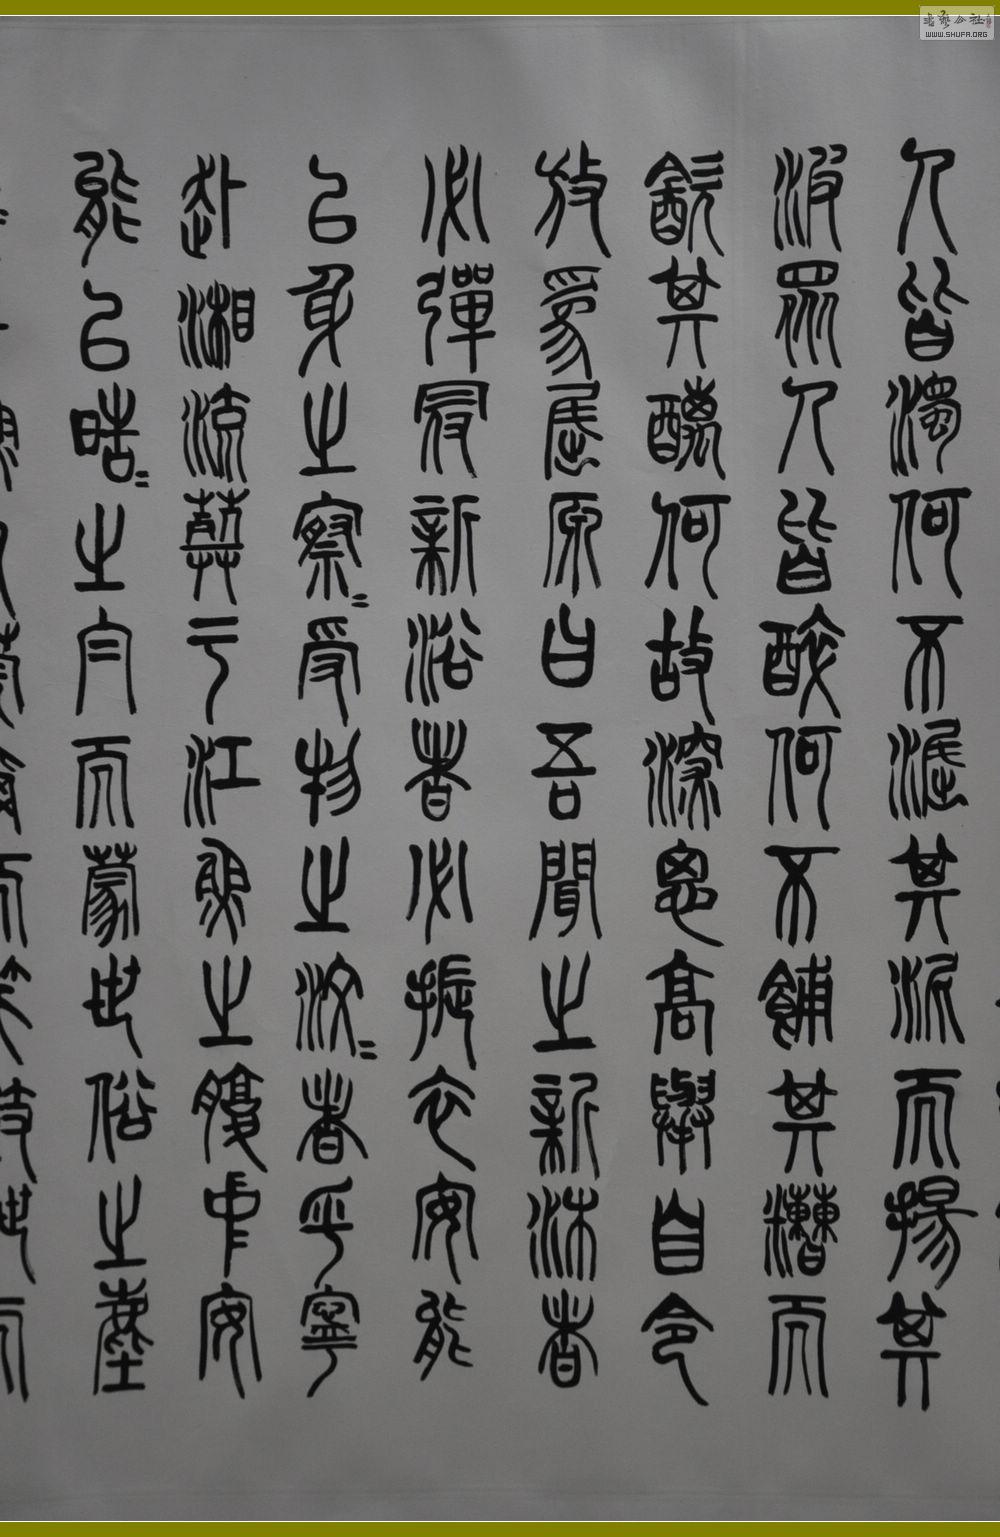 人皆濁何不淈其泥而揚其
波眾人皆醉何不餔其糟而
歠其醨何故深思高舉自令
放為屈原曰吾聞之新沐者
必彈冠新浴者必振衣安能
以身之察=受物之汶=者乎寧
赴湘流葬于江魚之腹中安
能以晧=之白而蒙世俗之塵
WWW.SHUFA.ORG